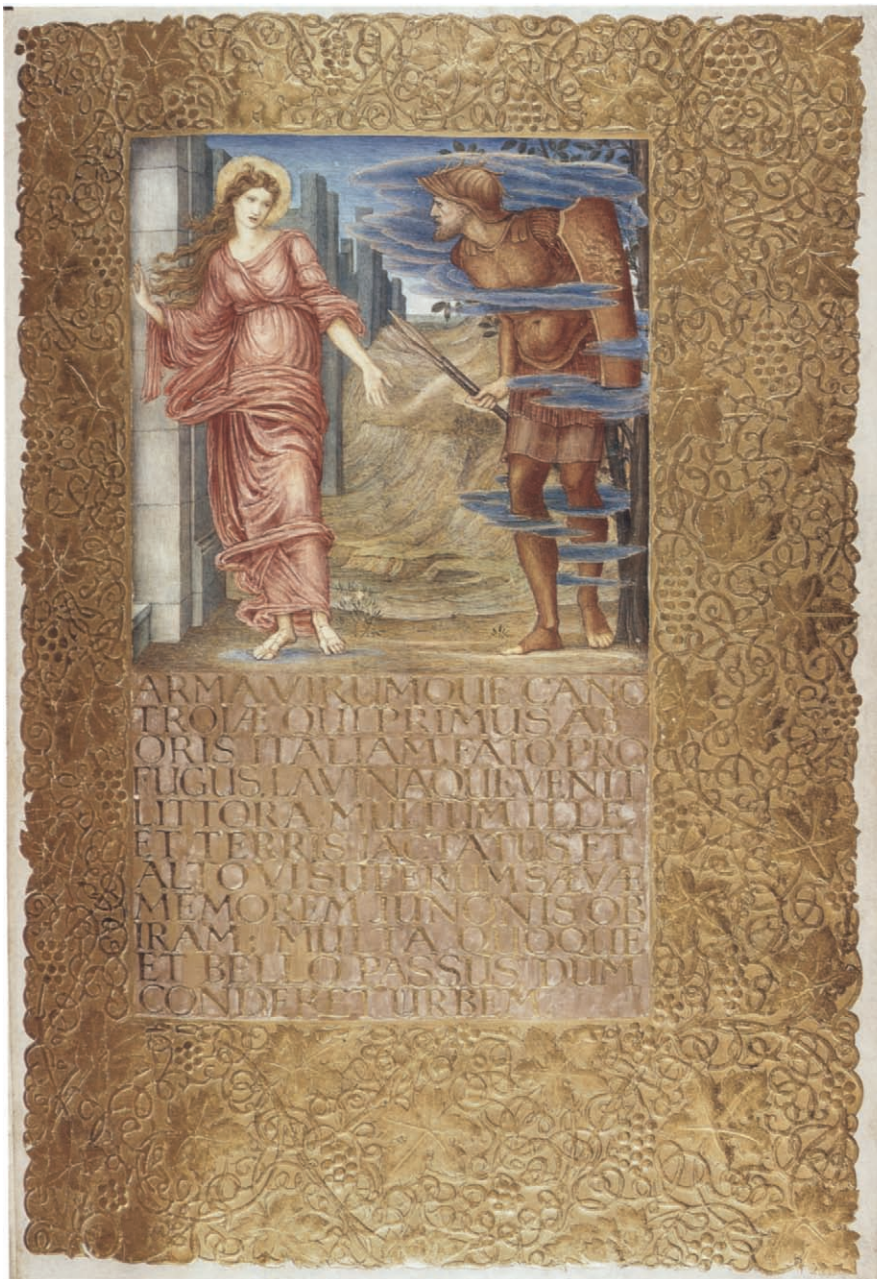 ARMA VIRUMQUE CANO
TROIÆ QUI PRIMUS AB
ORIS ITALIAM, FATO PRO
FUGUS, LAVINAQUE VENIT
LITTORA MULTUM ILLE
ET TERRIS JACTATUS ET
ALTO VI SUPERUM SÆVÆ
MEMOREM JUNONIS OB
IRAM: MULTA QUOQUE
ET BELLO PASSUS DUM
CONDERET URBEM